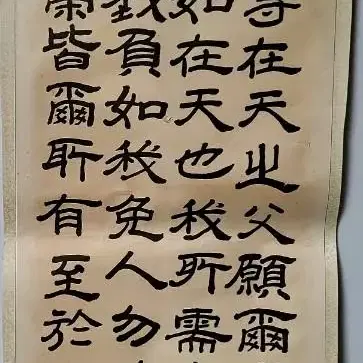 等在天之父願爾
如在天也我所需
負如我免人勿
榮皆爾所有至於